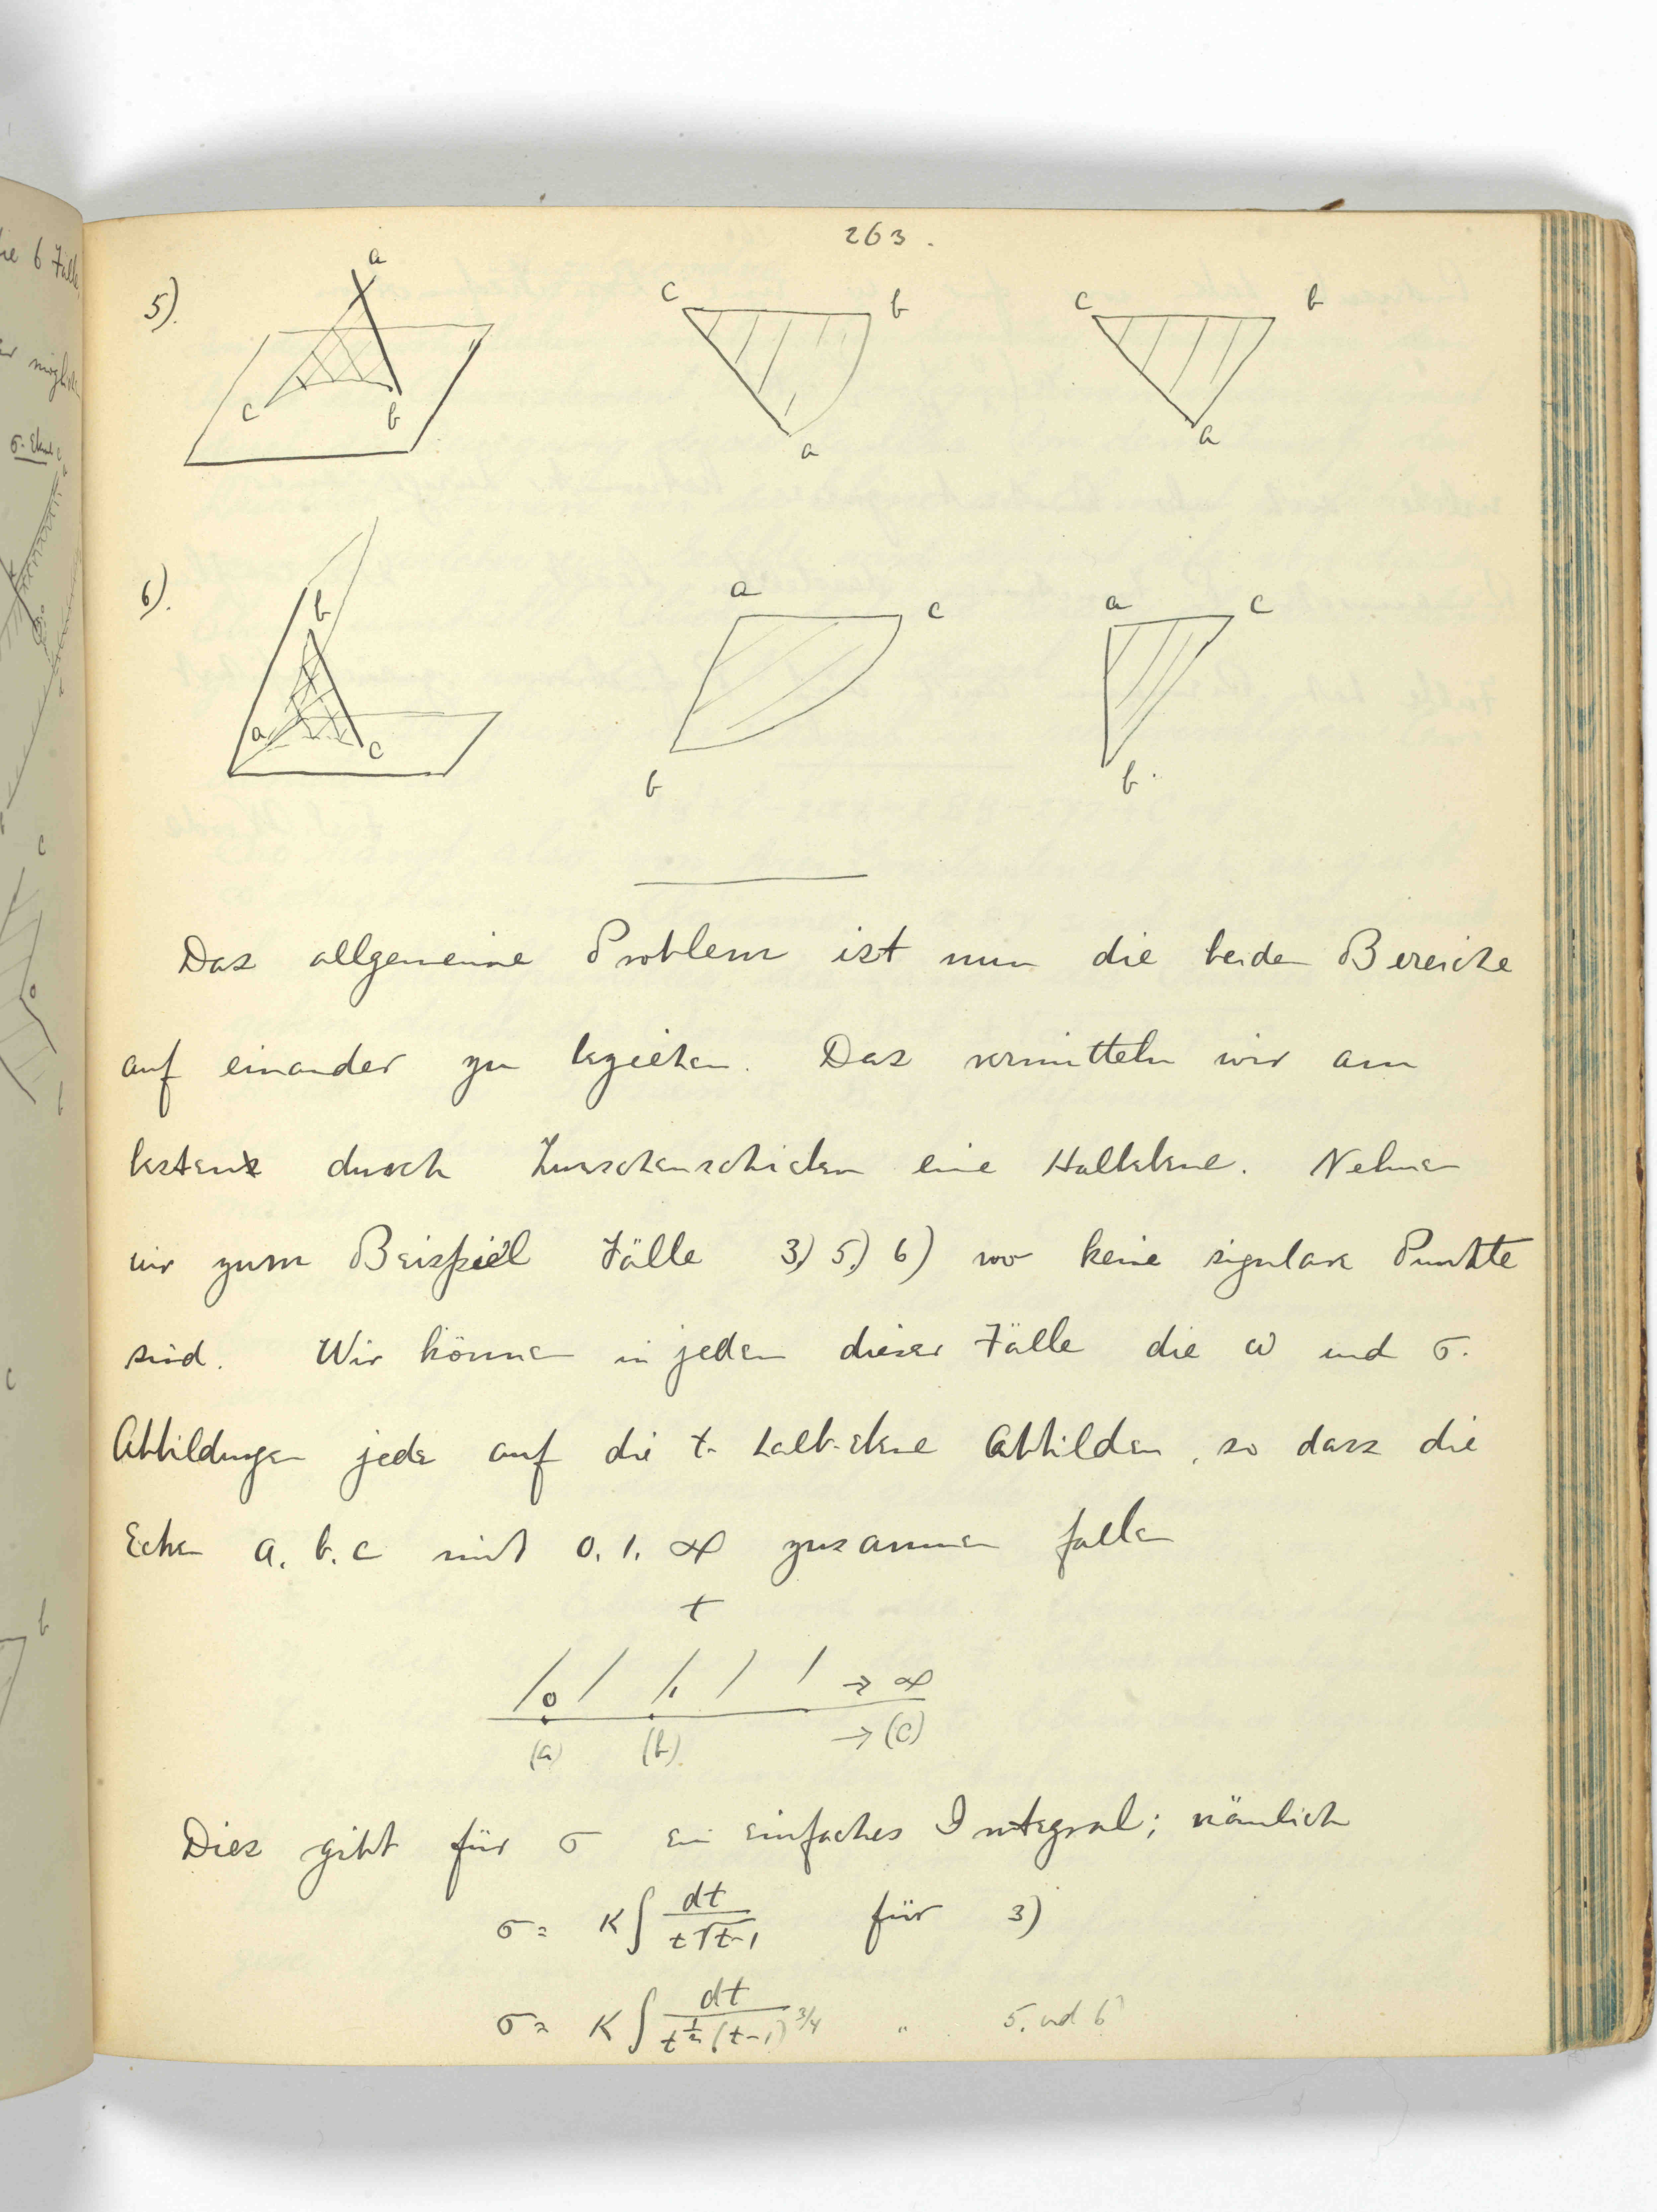 263.
5).
a
c
b
c
b
a
c
b
a
6).
b
a
c
a
c
b
a
c
b.
Das allgemeine Problem ist nun die beiden Bereiche
auf einander zu beziehen. Das vermitteln wir am
bestens durch Zwischenschieben eine Halbebene. Nehmen
wir zum Beispiel Fälle 3) 5) 6) wo keine singulare Punkte
sind. Wir können in jeden dieser Fälle die ω und σ.
Abbildungen jede auf die t- halb-ebene Abbilden, so dass die
Ecken a. b. c mit 0. 1. ∞ zusammen fallen
t
0 1 → ∞
(a) (b) → (c)
Dies gibt für σ ein einfaches Integral; nämlich
σ = K ∫ dt / t √t-1 für 3)
σ = K ∫ dt / t^½ (t-1)^3/4 " 5. und 6